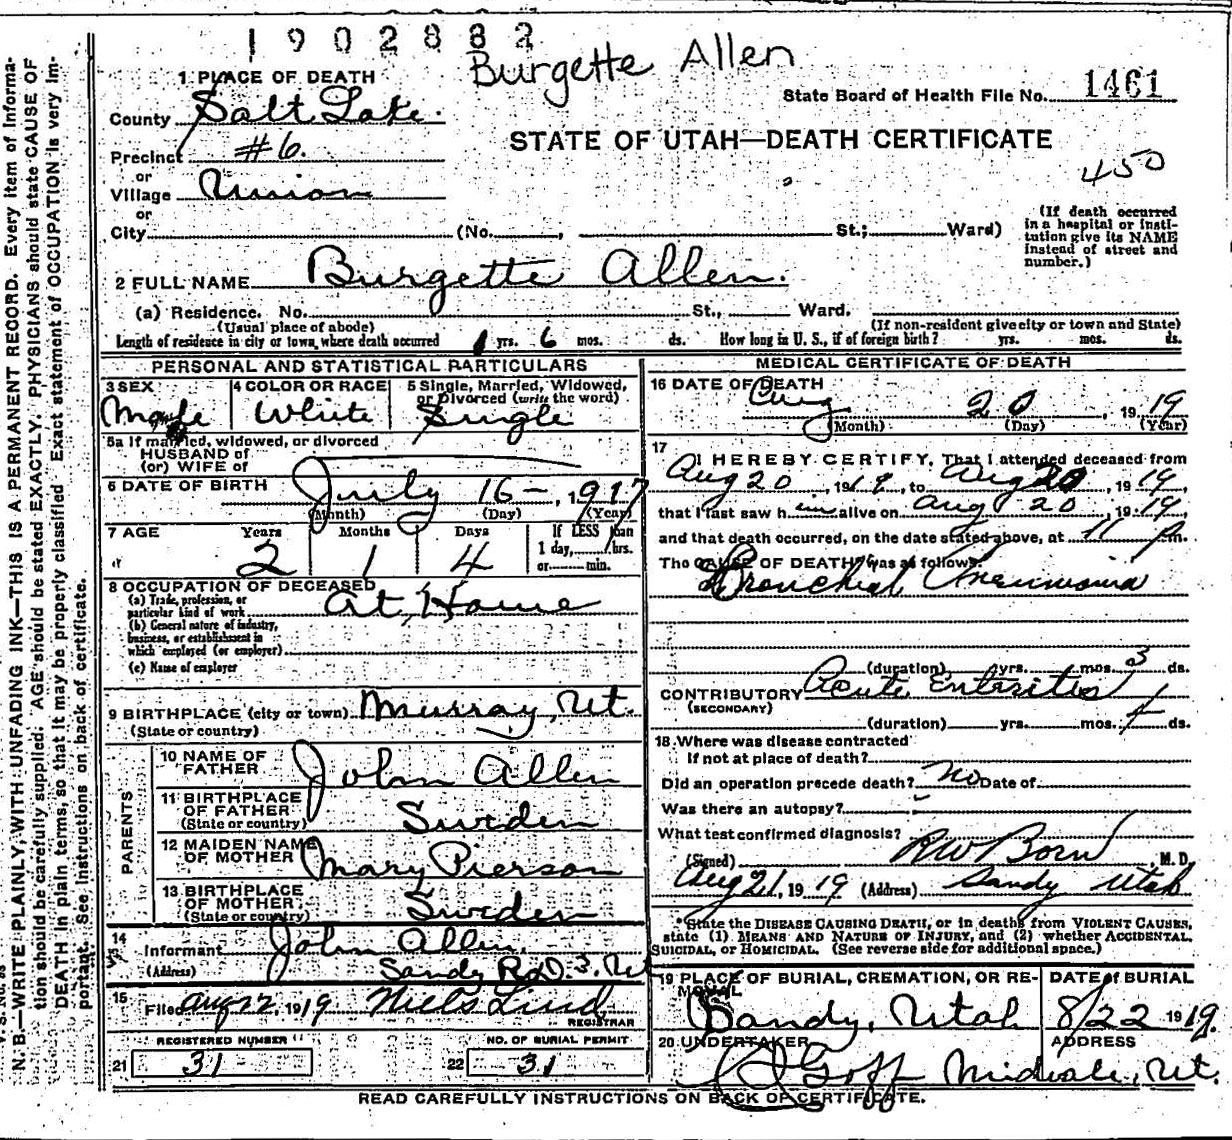 1902882
Burgette Allen
State Board of Health File No. 1461
STATE OF UTAH—DEATH CERTIFICATE
450
1 PLACE OF DEATH
County Salt Lake.
Precinct #6.
or
Village Union
or
City (No. , St.; Ward)
(If death occurred in a hospital or insti-
tution give its NAME instead of street and number.)
2 FULL NAME Burgette Allen.
(a) Residence. No. St., Ward.
(Usual place of abode) (If non-resident give city or town and State)
Length of residence in city or town where death occurred 1 yrs. 6 mos. ds. How long in U. S., if of foreign birth? yrs. mos. ds.
PERSONAL AND STATISTICAL PARTICULARS
3 SEX Male
4 COLOR OR RACE White
5 Single, Married, Widowed, or Divorced (write the word) Single
5a If married, widowed, or divorced
HUSBAND of
(or) WIFE of
6 DATE OF BIRTH July 16—, 1917
(Month) (Day) (Year)
7 AGE Years 2 Months 1 Days 4
If LESS than
1 day, hrs.
or min.
8 OCCUPATION OF DECEASED
(a) Trade, profession, or
particular kind of work At Home
(b) General nature of industry,
business, or establishment in
which employed (or employer)
(c) Name of employer
9 BIRTHPLACE (city or town) Murray, Ut.
(State or country)
PARENTS
10 NAME OF FATHER John Allen
11 BIRTHPLACE OF FATHER Sweden
(State or country)
12 MAIDEN NAME OF MOTHER Mary Pierson
13 BIRTHPLACE OF MOTHER Sweden
(State or country)
14 Informant John Allen.
(Address) Sandy R.D. 3. Ut
15 Filed Aug 22, 1919 Niels Lind
REGISTRAR
REGISTERED NUMBER
21 31
NO. OF BURIAL PERMIT
22 31
MEDICAL CERTIFICATE OF DEATH
16 DATE OF DEATH
Aug 20, 1919
(Month) (Day) (Year)
17 I HEREBY CERTIFY, That I attended deceased from
Aug 20, 1919, to Aug 20, 1919,
that I last saw him alive on Aug 20, 1919,
and that death occurred, on the date stated above, at 11 P m.
The CAUSE OF DEATH was as follows:
Bronchial Pneumonia
(duration) yrs. mos. 3 ds.
CONTRIBUTORY Acute Enteritis
(SECONDARY)
(duration) yrs. mos. ds.
18 Where was disease contracted
If not at place of death?
Did an operation precede death? No Date of
Was there an autopsy?
What test confirmed diagnosis?
(Signed) RW Born, M. D.
Aug 21, 1919 (Address) Sandy Utah
*State the DISEASE CAUSING DEATH, or in deaths from VIOLENT CAUSES,
state (1) MEANS AND NATURE OF INJURY, and (2) whether ACCIDENTAL,
SUICIDAL, or HOMICIDAL. (See reverse side for additional space.)
19 PLACE OF BURIAL, CREMATION, OR RE-
MOVAL
Sandy, Utah
DATE of BURIAL
8/22 1919.
20 UNDERTAKER
Goff
ADDRESS
Midvale, Ut.
READ CAREFULLY INSTRUCTIONS ON BACK OF CERTIFICATE.
N. B.—WRITE PLAINLY, WITH UNFADING INK—THIS IS A PERMANENT RECORD. Every item of informa-
tion should be carefully supplied. AGE should be stated EXACTLY. PHYSICIANS should state CAUSE OF
DEATH in plain terms, so that it may be properly classified. Exact statement of OCCUPATION is very im-
portant. See instructions on back of certificate.